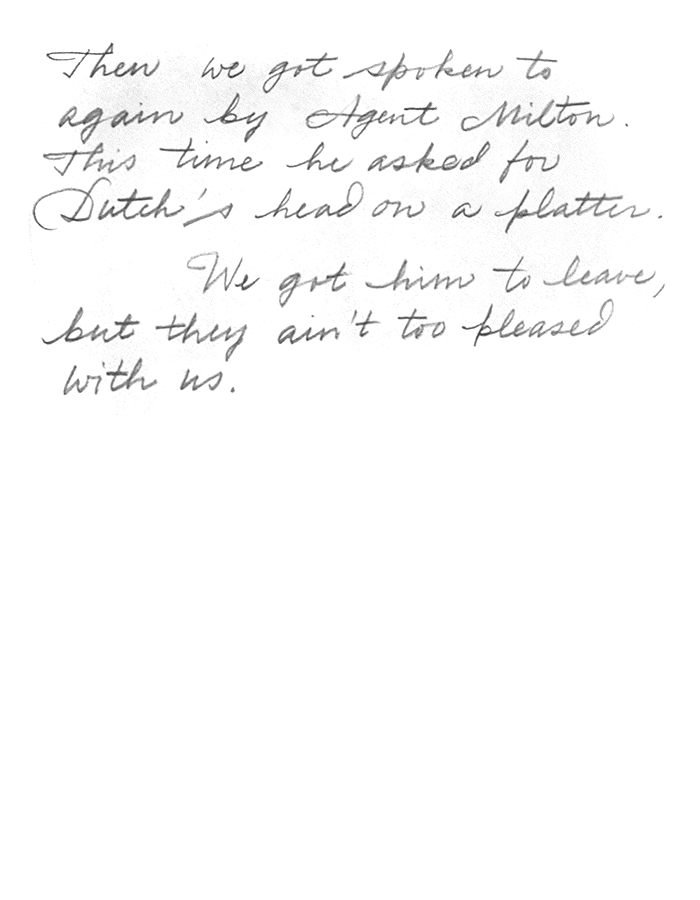 Then we got spoken to
again by Agent Milton.
This time he asked for
Dutch's head on a platter.
We got him to leave,
but they ain't too pleased
with us.